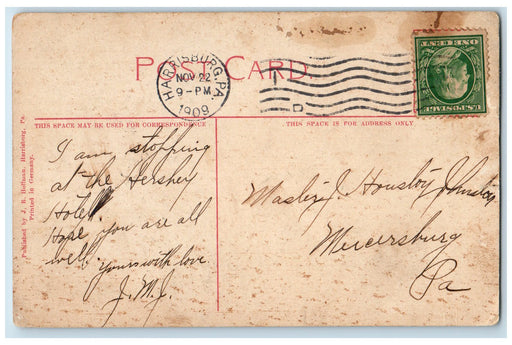 POST CARD
HARRISBURG, PA.
NOV 22
9-PM
1909
D
U.S. POSTAGE
ONE CENT
THIS SPACE MAY BE USED FOR CORRESPONDENCE
THIS SPACE IS FOR ADDRESS ONLY
Published by J. B. Hoffman, Harrisburg, Pa.
Printed in Germany.
I am stopping
at the Hershey
Hotel.
Hope you are all
well. yours with love
J. M. J.
Master J. Johnston
Mercersburg
Pa